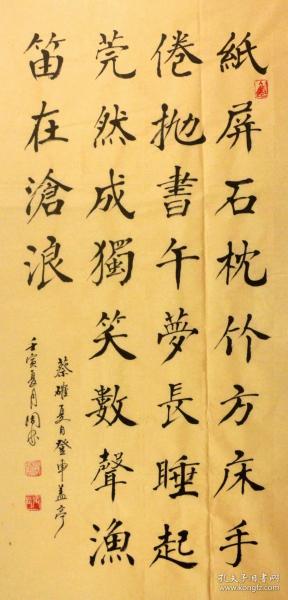 紙屏石枕竹方床手
倦抛書午夢長睡起
莞然成獨笑數聲漁
笛在滄浪
蔡確夏日登車蓋亭
壬寅夏月
孔夫子旧书网